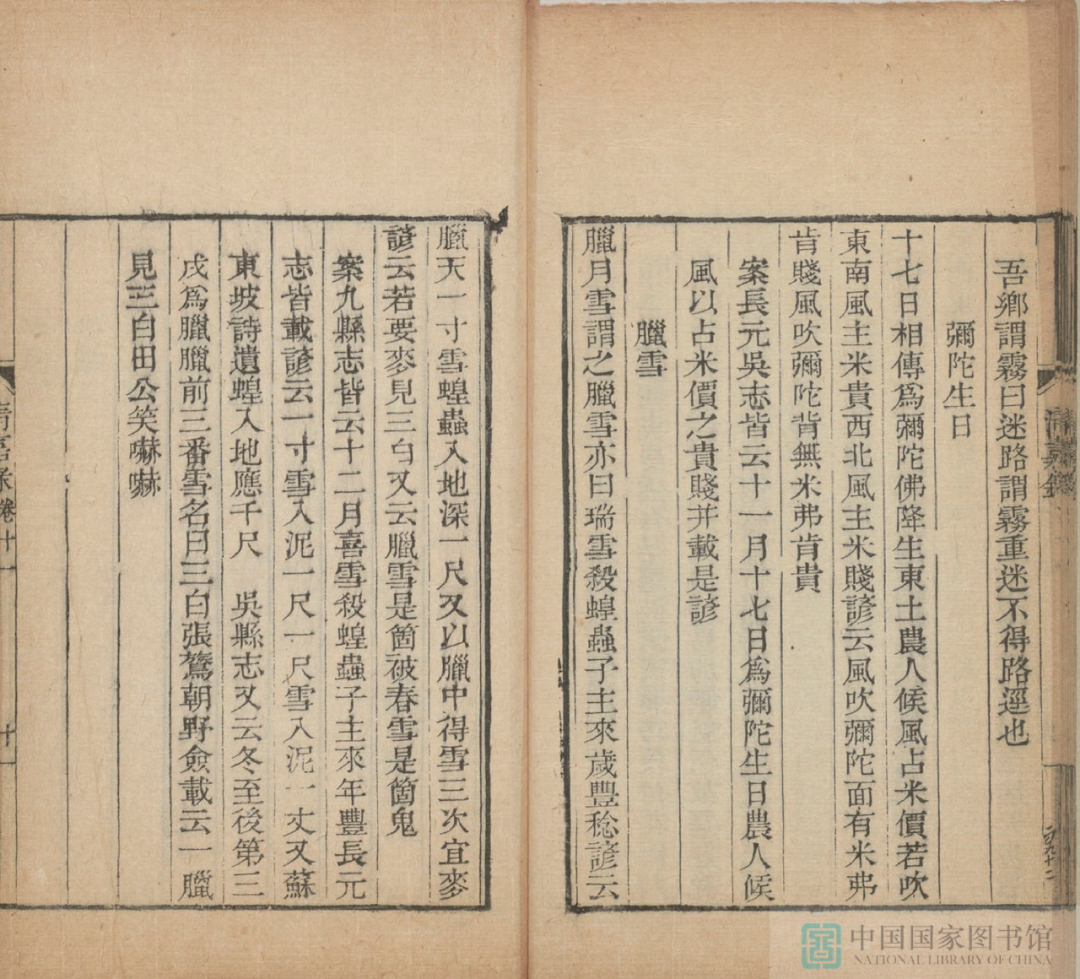 吾鄉謂霧曰迷路謂霧重迷不得路逕也
彌陀生日
十七日相傳爲彌陀佛降生東土農人候風占米價若吹
東南風主米貴西北風主米賤諺云風吹彌陀面有米弗
肯賤風吹彌陀背無米弗肯貴
案長元吳志皆云十一月十七日爲彌陀生日農人候
風以占米價之貴賤并載是諺
臘雪
臘月雪謂之臘雪亦曰瑞雪殺蝗蟲子主來歲豐稔諺云
臘天一寸雪蝗蟲入地深一尺又以臘中得雪三次宜麥
諺云若要麥見三白又云臘雪是箇被春雪是箇鬼
案九縣志皆云十二月喜雪殺蝗蟲子主來年豐長元
志皆載諺云一寸雪入泥一尺一尺雪入泥一丈又蘇
東坡詩遺蝗入地應千尺 吳縣志又云冬至後第三
戌爲臘臘前三番雪名曰三白張鷟朝野僉載云一臘
見三白田公笑嚇嚇
清嘉錄
卷十一
十一
中国国家图书馆
NATIONAL LIBRARY OF CHINA